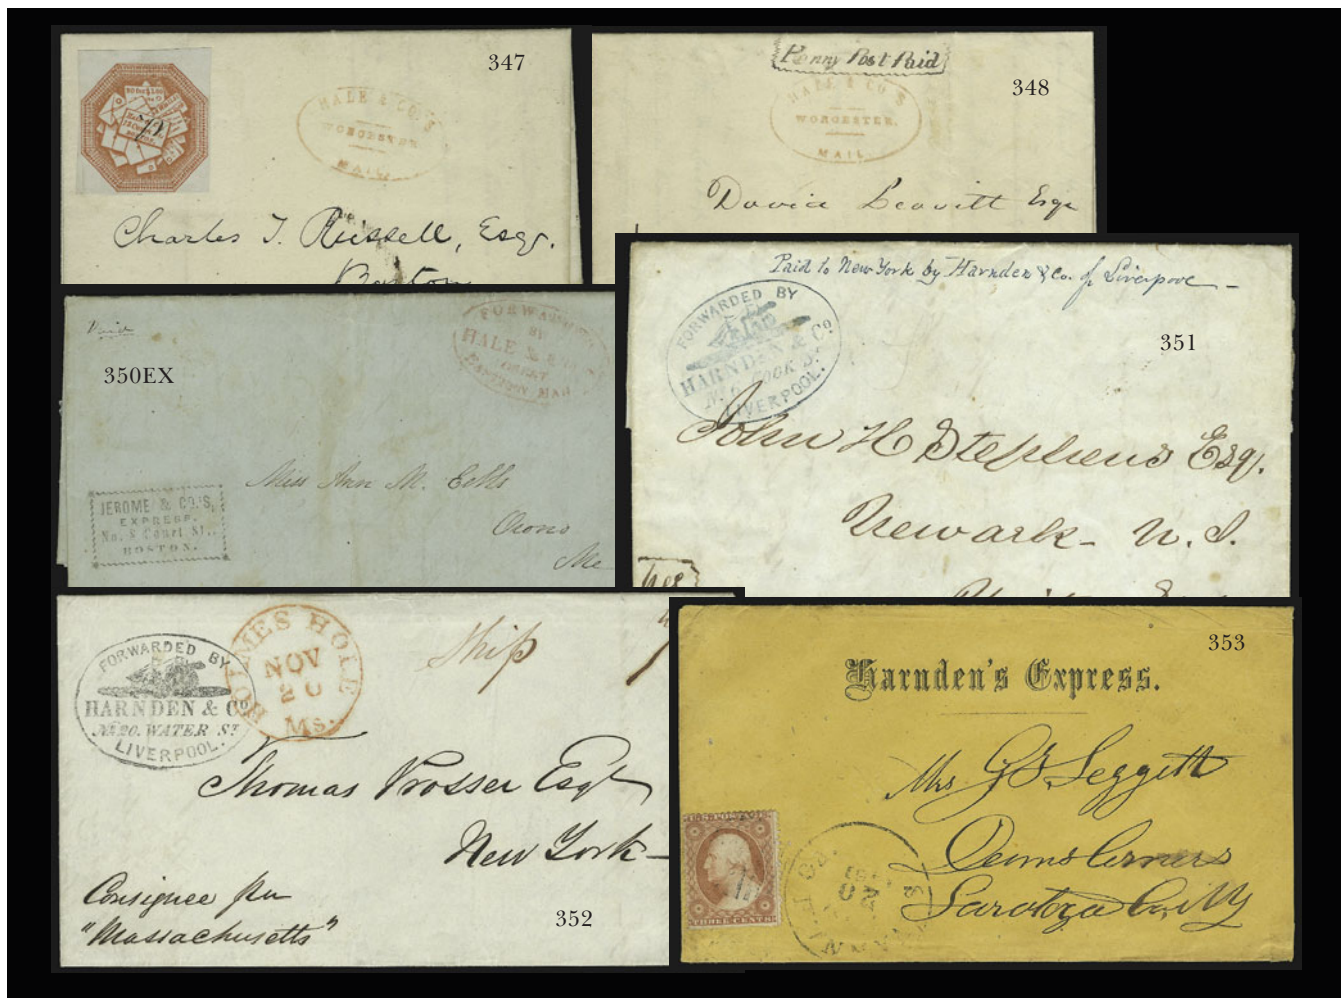 347
HALE & CO'S
WORCESTER
MAIL
Charles T. Russell, Esqr.
Boston
Penny Post Paid
348
HALE & CO'S
WORCESTER.
MAIL.
Leavitt Esqr
Paid
350EX
FORWARDED
BY
HALE & CO
EASTERN MAIL
JEROME & CO.'S,
EXPRESS,
No. 8 Court St.,
BOSTON.
Miss Ann M.
Orono
Me
Paid to New York by Harnden & Co. of Liverpool
351
FORWARDED BY
HARNDEN & Co
COOK St
LIVERPOOL.
John H Stephens Esq.
Newark - N. J.
FORWARDED BY
HARNDEN & Co
No 20. WATER ST
LIVERPOOL.
HOLMES HOLE
NOV
20
Ms.
Ship
Thomas Prosser Esqr
New York
Consignee per
"Massachusetts"
352
353
Harnden's Express.
Mrs G Leggett
Deans Corners
Saratoga Co. NY
U.S. POSTAGE
THREE CENTS
20